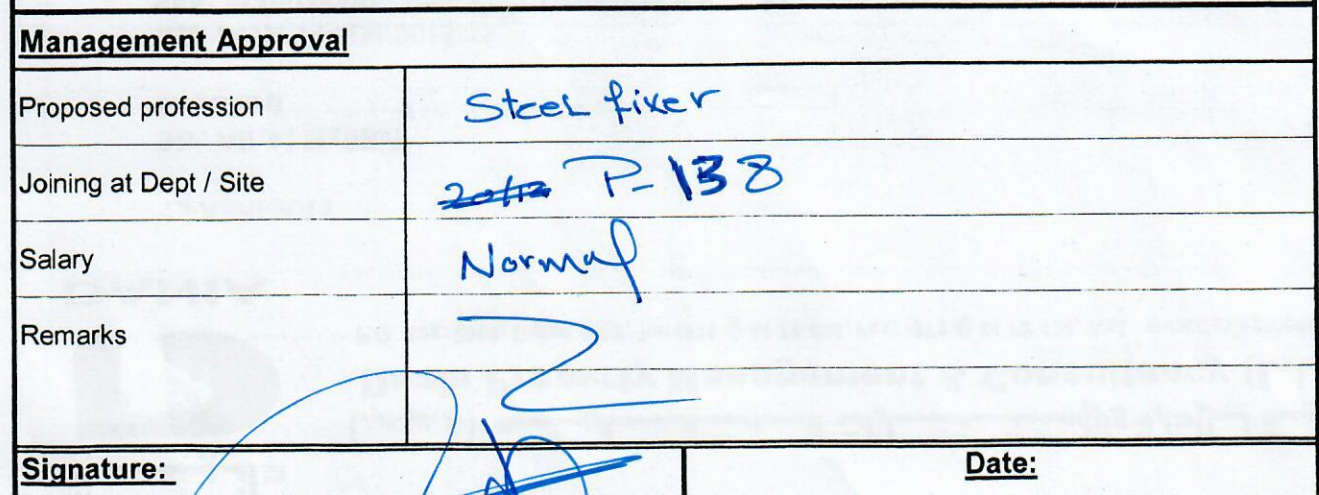 Management Approval
Proposed profession Steel fixer
Joining at Dept / Site 20/12 P-138
Salary Normal
Remarks
Signature: Date: